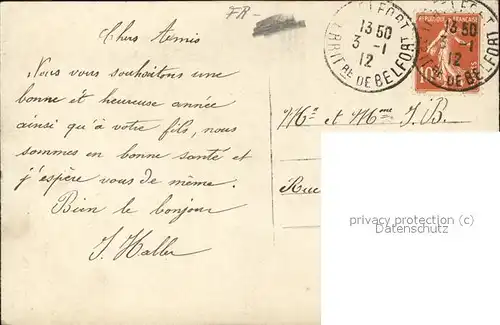 FR-
Chers Amis
Nous vous souhaitons une
bonne et heureuse année
ainsi qu'à votre fils, nous
sommes en bonne santé et
j'espère vous de même.
Bien le bonjour
J. Haller
BELFORT
13 50
3 -1
12
TERRIT RE DE BELFORT
REPUBLIQUE FRANÇAISE
13 50
3 -1
12
RE DE BELFORT
10
Mr et Mme J. B.
Rue
privacy protection (c)
Datenschutz